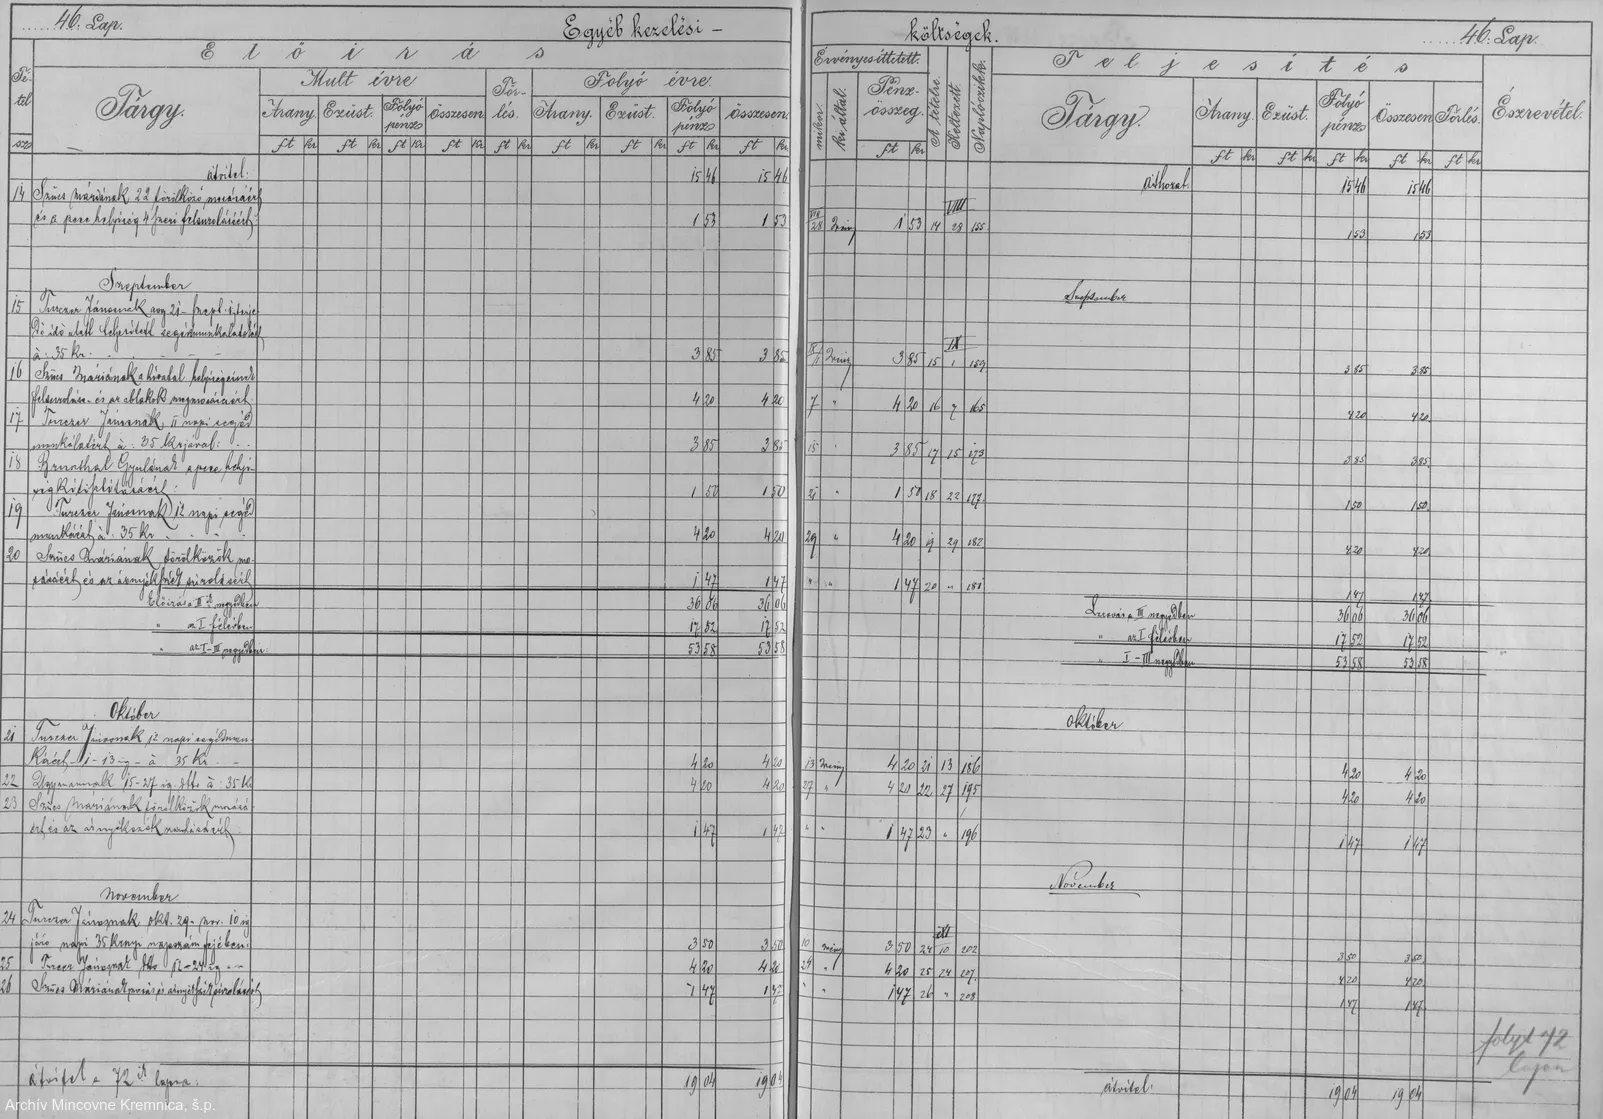 46. Lap.
Egyéb kezelési –
költségek.
46. Lap.
Előirás
Té-
tel
szs
Tárgy.
Mult évre
Tör-
lés.
Folyó évre.
Arany. Ezüst. Folyó pénz Összesen.
Arany. Ezüst. Folyó pénz Összesen.
ft kr ft kr ft kr ft kr ft kr ft kr ft kr ft kr ft kr
Érvényesíttetett.
mikor. ki által. Pénz-összeg. A tételre. Keltezett Naplócikk.
ft kr
Teljesítés
Tárgy. Arany. Ezüst. Folyó pénz Összesen Törlés. Észrevétel.
ft kr ft kr ft kr ft kr ft kr
átvitel. 15 46 15 46
Áthozat. 15 46 15 46
14 Szűcs Máriának 22 törülköző mosásáért
és a pecz helyiség 4 szeri felsurolásáért 1 53 1 53
VIII 28 1 53 14 VIII 28 155 1 53 1 53
Szeptember
Szeptember
15 Turczer Jánosnak aug 21– szept. 1 terje-
dő idő alatt teljesített segédmunkálatokért
à 35 kr. 3 85 3 85
IX 1 3 85 15 IX 1 159 3 85 3 85
16 Szűcs Máriának a hivatal helyiségeinek
felsurolása és az ablakok megmosásáért 4 20 4 20
7 " 4 20 16 7 165 4 20 4 20
17 Turczer Jánosnak 11 napi segéd
munkálatért à 35 krjával 3 85 3 85
15 " 3 85 17 15 173 3 85 3 85
18 Gyulának a pecz helyi-
ség kitisztításáért 1 50 1 50
21 " 1 50 18 22 177 1 50 1 50
19 Turczer Jánosnak 12 napi segéd
munkáért à 35 kr 4 20 4 20
29 " 4 20 19 29 182 4 20 4 20
20 Szűcs Máriának törölközők mo-
sásáért és az árnyékszék surolásért 1 47 1 47
" " 1 47 20 " 183 1 47 1 47
Előirás a III ik negyedben 36 06 36 06
" az I félévben 17 52 17 52
" az I–III negyedben 53 58 53 58
Lerovás a III negyedben 36 06 36 06
" az I félévben 17 52 17 52
" I–III negyedben 53 58 53 58
Október
Október
21 Turczer Jánosnak 12 napi segédmun-
káért 1–13 ig à 35 kr 4 20 4 20
13 4 20 21 13 186 4 20 4 20
22 Ugyanannak 15–27 ig dtto à 35 kr 4 20 4 20
27 " 4 20 22 27 195 4 20 4 20
23 Szűcs Máriának törölközők mosásá-
ért és az árnyékszék 1 47 1 47
" " 1 47 23 " 196 1 47 1 47
November
November
24 Turczer Jánosnak okt. 29– nov. 10 ig
járó napi 35 krnyi napszám fejében 3 50 3 50
10 3 50 24 XI 10 202 3 50 3 50
25 Turczer Jánosnak dtto 12–24 ig 4 20 4 20
24 " 4 20 25 24 207 4 20 4 20
26 Szűcs Máriának mosás és árnyékszék surolásért 1 47 1 47
" " 1 47 26 " 208 1 47 1 47
folyt 72
lapon
átvitel a 72 ik lapra. 19 04 19 04
átvitel. 19 04 19 04
Archív Mincovne Kremnica, š.p.